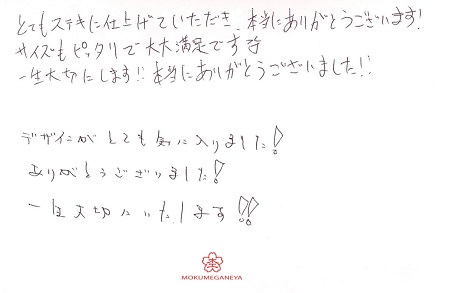 とてもステキに仕上げていただき、本当にありがとうございます!
サイズもピッタリで大大満足です☆
一生大切にします!!本当にありがとうございました!!
デザインがとても気に入りました!
ありがとうございました!
一生大切にいたします!!
MOKUMEGANEYA